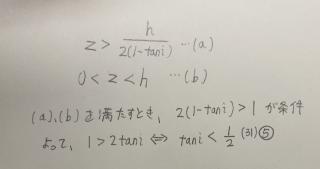 z > h / 2(1-tan i) …(a)
0 < z < h …(b)
(a),(b)を満たすとき、2(1-tan i) > 1 が条件
よって、1 > 2tan i ⇔ tan i < 1/2 (31)⑤